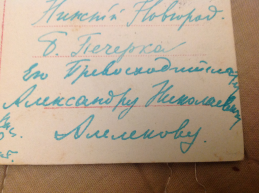 Нижній Новгород.
Б. Печерка
Его Превосходительству
Александру Николаевичу
Алелекову.